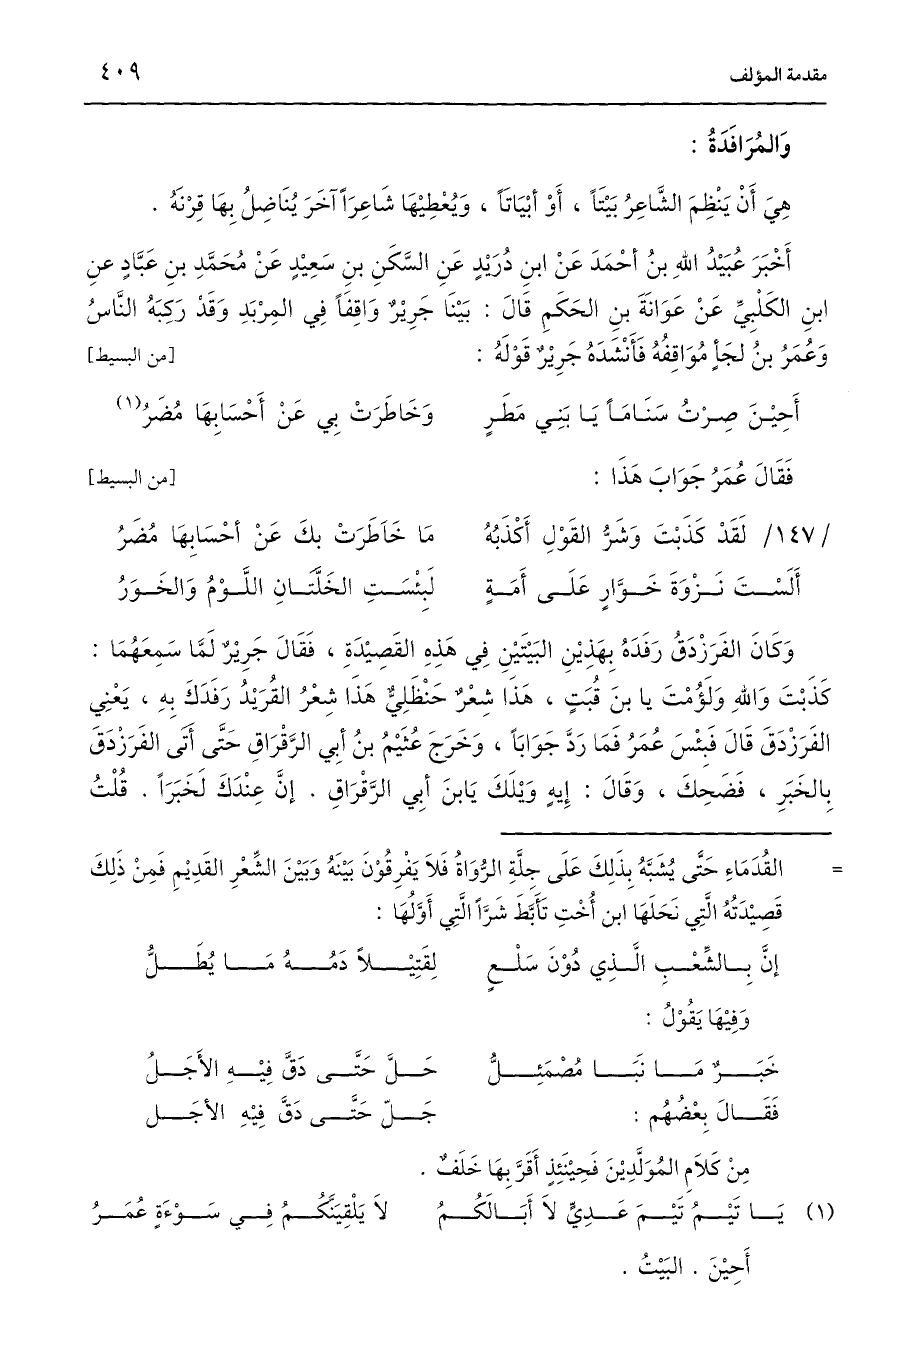 مقدمة المؤلف ٤٠٩
وَالمُرَافَدَةُ :
هِيَ أَنْ يَنْظِمَ الشَّاعِرُ بَيْتَاً ، أَوْ أَبْيَاتَاً ، وَيُعْطِيْهَا شَاعِرَاً آخَرَ يُنَاضِلُ بِهَا قِرْنَهُ .
أَخْبَرَ عُبَيْدُ اللهِ بنُ أَحْمَدَ عَنْ ابنِ دُرَيْدٍ عَنِ السَّكَنِ بنِ سَعِيْدٍ عَنْ مُحَمَّدِ بنِ عَبَّادٍ عنِ
ابنِ الكَلْبِيِّ عَنْ عَوَانَةَ بنِ الحَكَمِ قَالَ : بَيْنَا جَرِيْرٌ وَاقِفَاً فِي المِرْبَدِ وَقَدْ رَكِبَهُ النَّاسُ
وَعُمَرُ بنُ لَجَأٍ مُوَاقِفُهُ فَأَنْشَدَهُ جَرِيْرٌ قَوْلَهُ : [من البسيط]
أَحِيْنَ صِرْتُ سَنَامَاً يَا بَنِي مَطَرٍ وَخَاطَرَتْ بِي عَنْ أَحْسَابِهَا مُضَرُ(١)
فَقَالَ عُمَرُ جَوَابَ هَذَا : [من البسيط]
/١٤٧/ لَقَدْ كَذَبْتَ وَشَرُّ القَوْلِ أَكْذَبُهُ مَا خَاطَرَتْ بِكَ عَنْ أحْسَابِهَا مُضَرُ
أَلَسْتَ نَزْوَةَ خَوَّارٍ عَلَى أَمَةٍ لَبِئْسَتِ الخَلَّتَانِ اللَّوْمُ وَالخَوَرُ
وَكَانَ الفَرَزْدَقُ رَفَدَهُ بِهَذَيْنِ البَيْتَيْنِ فِي هَذِهِ القَصِيْدَةِ ، فَقَالَ جَرِيْرٌ لَمَّا سَمِعَهُمَا :
كَذَبْتَ وَاللهِ وَلَؤُمْتَ يا بنَ قُبَتٍ ، هَذَا شِعْرٌ حَنْظَلِيٌّ هَذَا شِعْرُ القُرَيْدُ رَفَدَكَ بِهِ ، يَعْنِي
الفَرَزْدَقَ قَالَ فَبَئْسَ عُمَرُ فَمَا رَدَّ جَوَابَاً ، وَخَرَجَ عُثَيْمُ بنُ أَبي الرَّقْرَاقِ حَتَّى أَتَى الفَرَزْدَقَ
بِالخَبَرِ ، فَضَحِكَ ، وَقَالَ : إِيهِ وَيْلَكَ يَابنَ أبي الرَّقْرَاقِ . إنَّ عِنْدَكَ لَخَبَرَاً . قُلْتُ
= القُدَمَاءِ حَتَّى يُشَبَّهُ بِذَلِكَ عَلَى جِلَّةِ الرُّوَاةُ فَلاَ يَفْرِقُوْنَ بَيْنَهُ وَبَيْنَ الشِّعْرِ القَدِيْمِ فَمِنْ ذَلِكَ
قَصِيْدَتُهُ الَّتِي نَحَلَهَا ابن أُخْتِ تَأَبَّطَ شَرَّاً الَّتِي أَوَّلُهَا :
إنَّ بِالشِّعْبِ الَّذِي دُوْنَ سَلْعٍ لِقَتِيْلاً دَمُهُ مَا يُطَلُّ
وَفِيْهَا يَقُوْلُ :
خَبَرٌ مَا نَبَا مُصْمَئِلُّ حَلَّ حَتَّى دَقَّ فِيْهِ الأَجَلُ
فَقَالَ بعْضُهُم : جَلّ حَتَّى دَقَّ فِيْهِ الأجَل
مِنْ كَلاَمِ المُوَلَّدِيْنَ فَحِيْنَئِذٍ أَقَرَّ بِهَا خَلَفٌ .
(١) يَا تَيْمُ تَيْمَ عَدِيٍّ لاَ أَبَالَكُمُ لاَ يَلْقِيَنَّكُمُ فِي سَوْءَةٍ عُمَرُ
أَحِيْنَ . البَيْتُ .